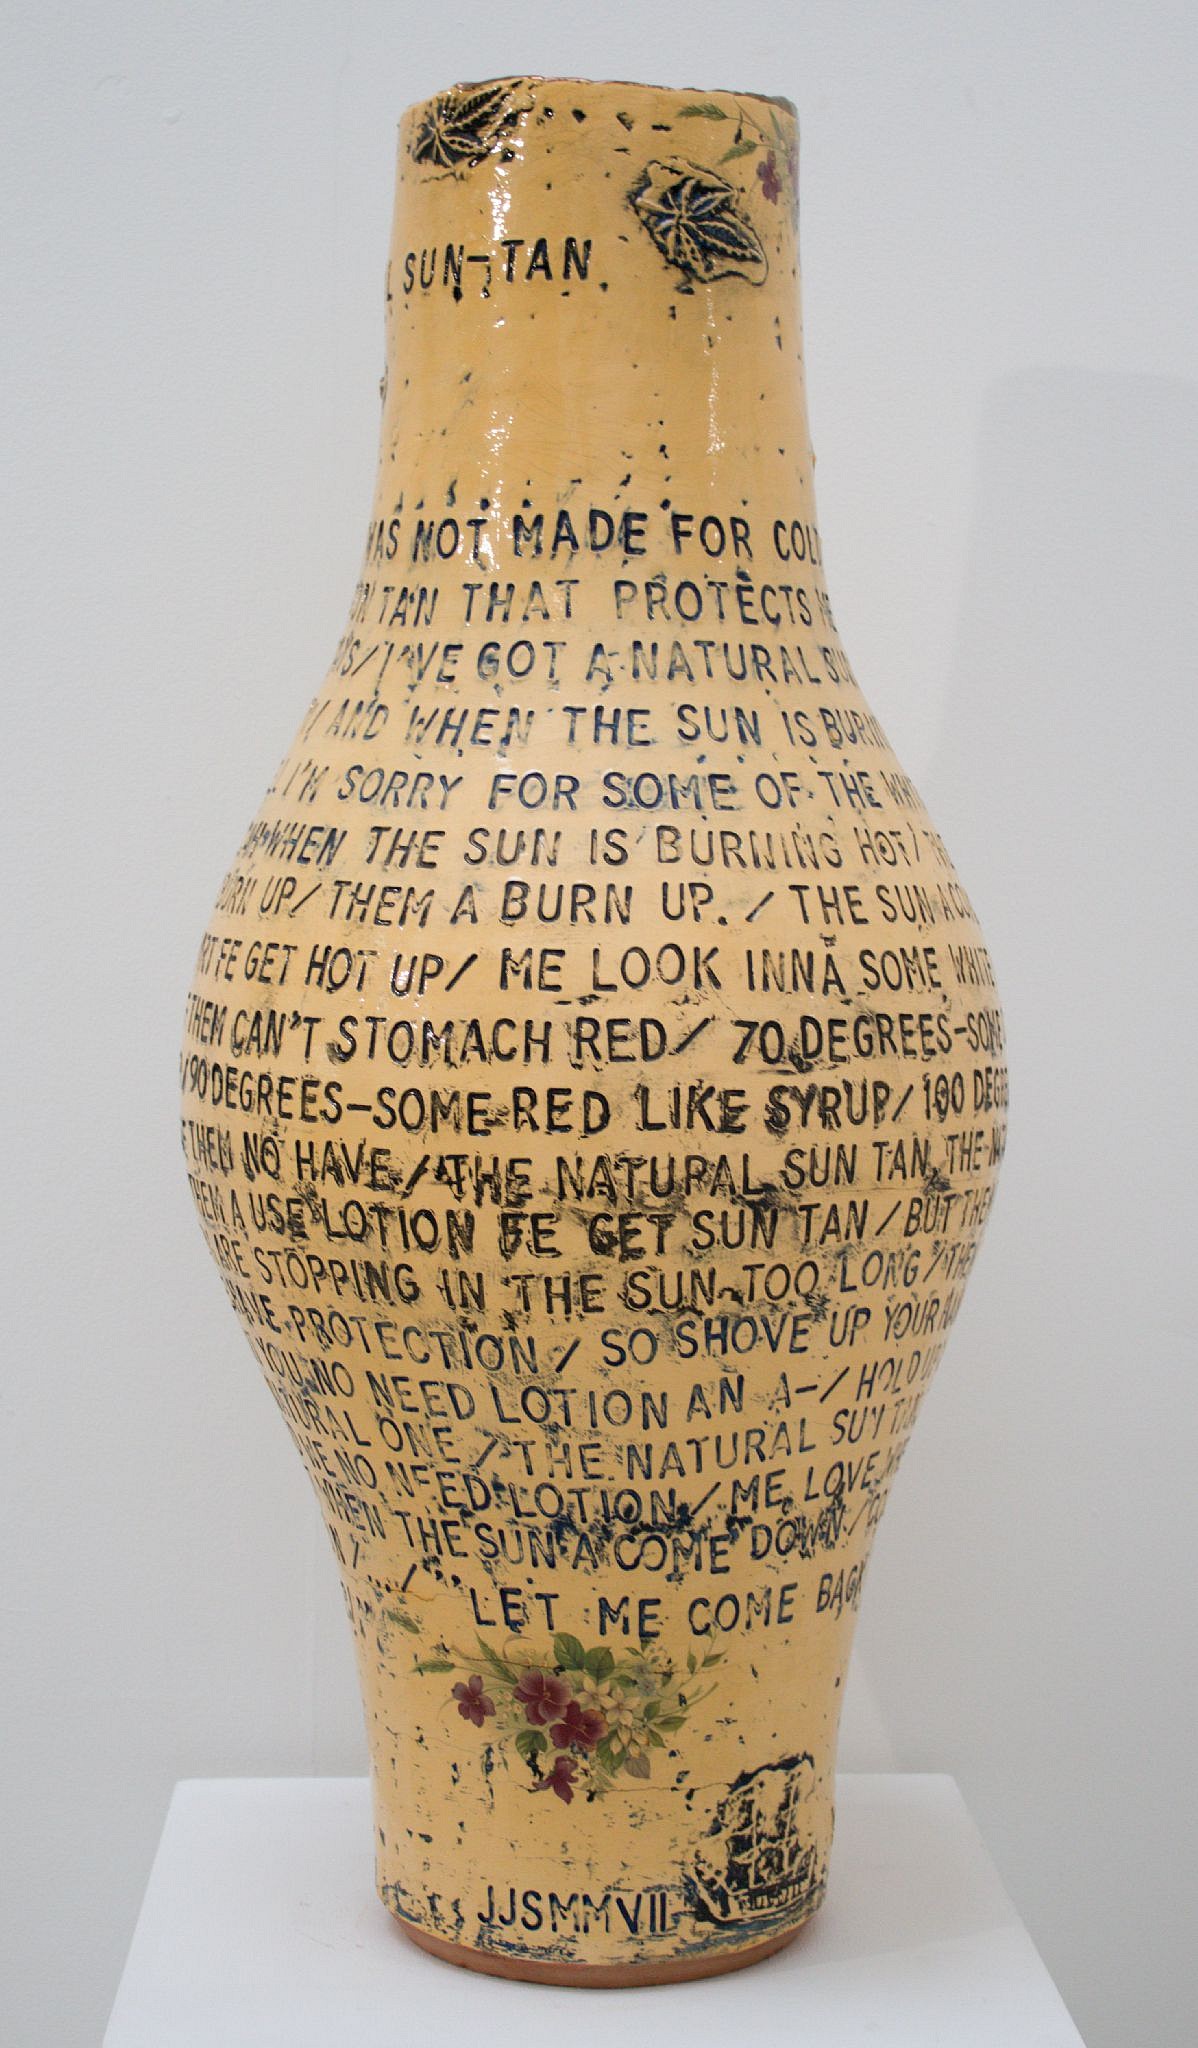 SUN-TAN
NOT MADE FOR
TAN THAT PROTECTS
I'VE GOT A NATURAL
AND WHEN THE SUN IS
I'M SORRY FOR SOME OF THE
WHEN THE SUN IS BURNING HOT/
BURN UP/ THEM A BURN UP. / THE SUN A
FE GET HOT UP/ ME LOOK INNA SOME WHITE
THEM CAN'T STOMACH RED/ 70 DEGREES-SOME
/90 DEGREES-SOME RED LIKE SYRUP/ 100
THEM NO HAVE/ THE NATURAL SUN TAN, THE
THEM A USE LOTION FE GET SUN TAN / BUT
ARE STOPPING IN THE SUN TOO LONG /
PROTECTION / SO SHOVE UP YOUR
YOU NO NEED LOTION AN A-/ HOLD UP
ONE / THE NATURAL SUN
NO NEED LOTION / ME LOVE
WHEN THE SUN A COME DOWN /
/.../"" LET ME COME BACK
JJSMMVII